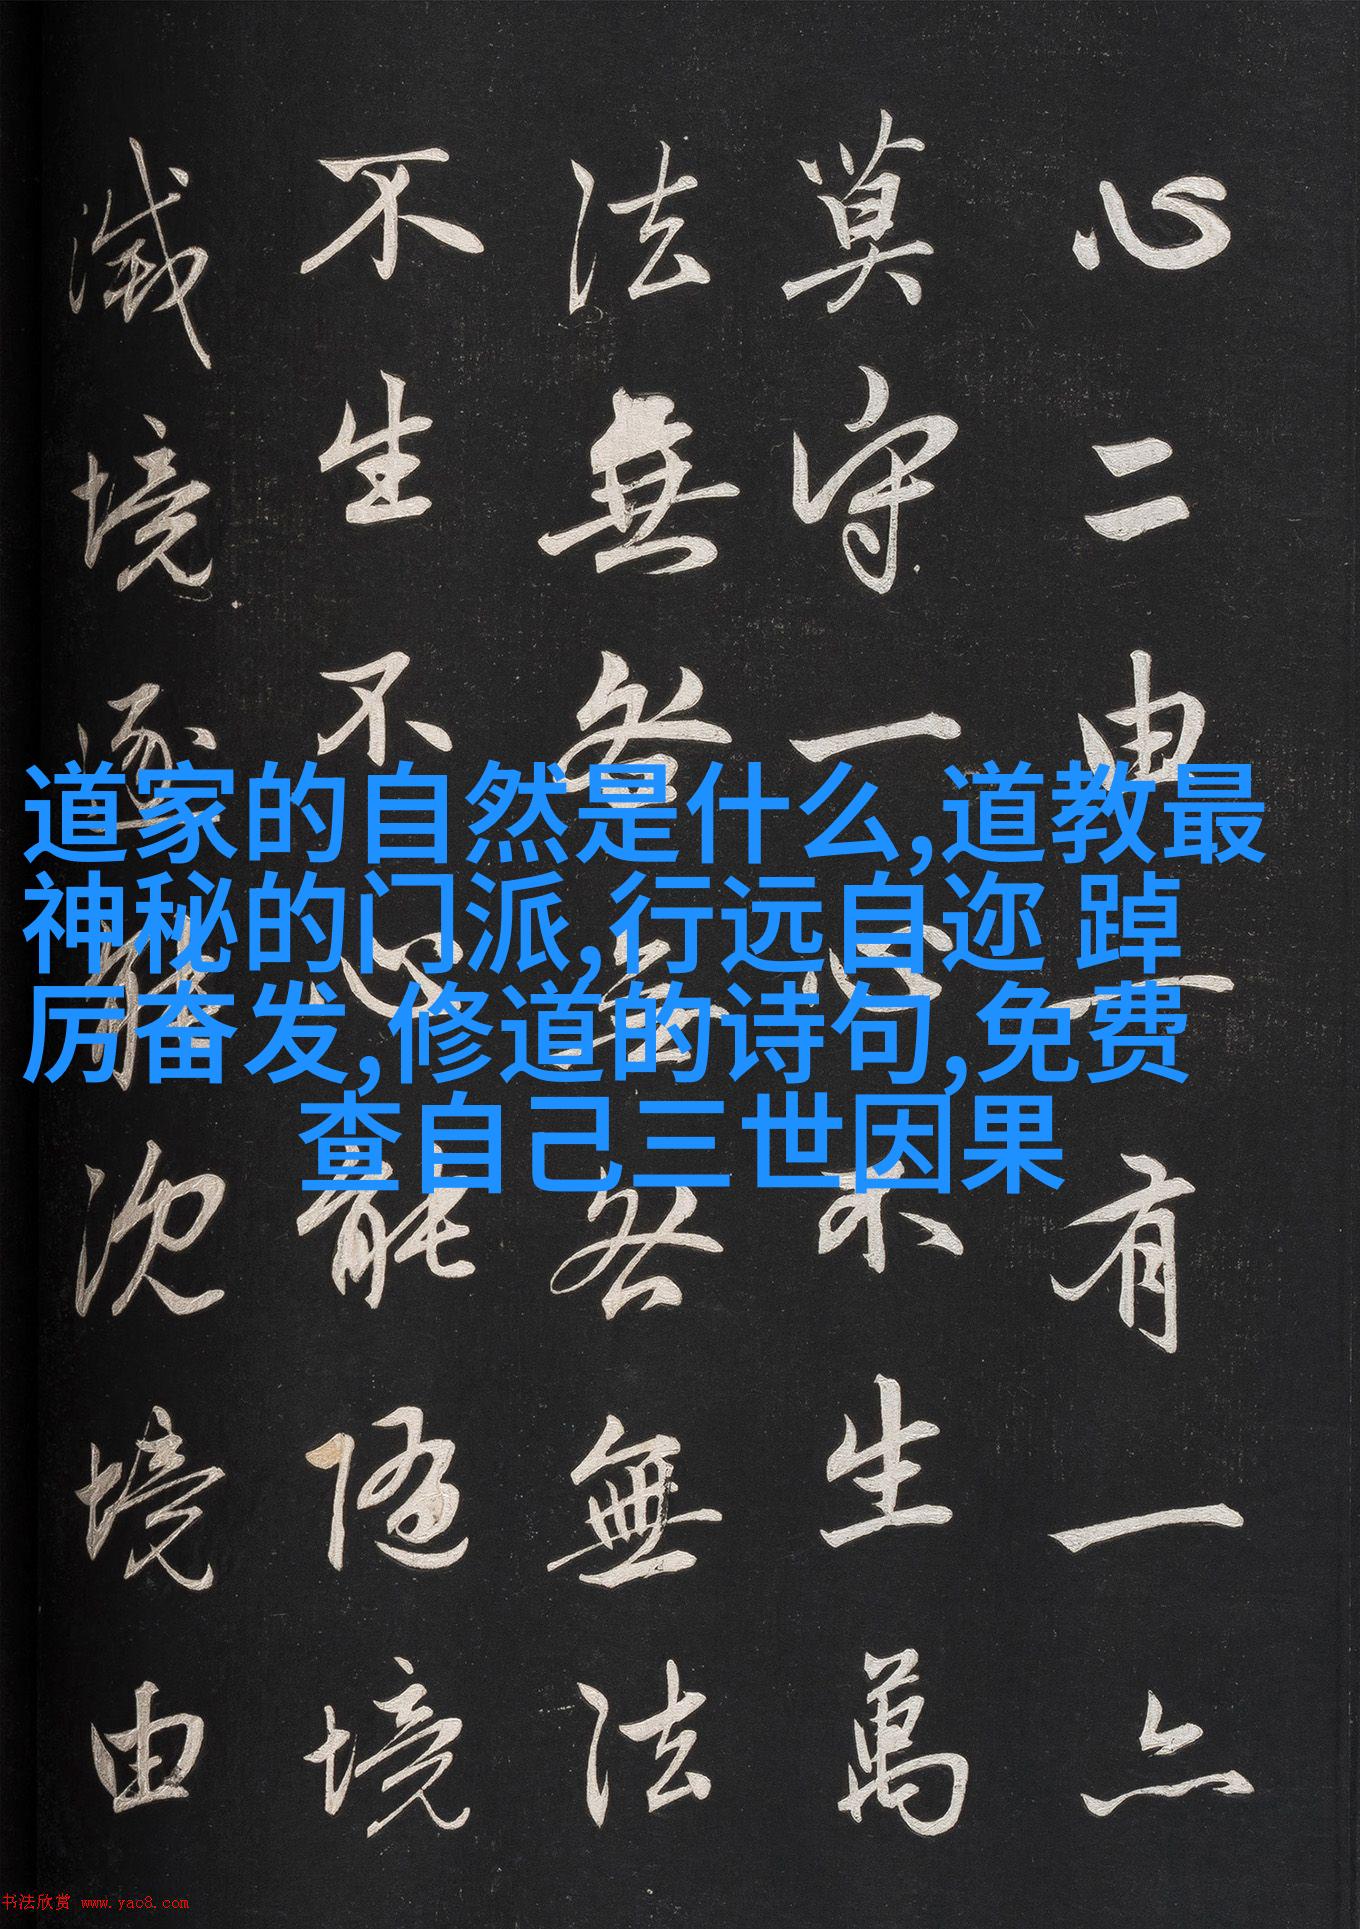 心二由一有一亦
莫守一心不生萬
法無咎無咎無法
不生不心能隨境
滅境逐能沈境由
道家的自然是什么,道教最
神秘的门派,行远自迩 踔
厉奋发,修道的诗句,免费
查自己三世因果
书法欣赏 www.yac8.com